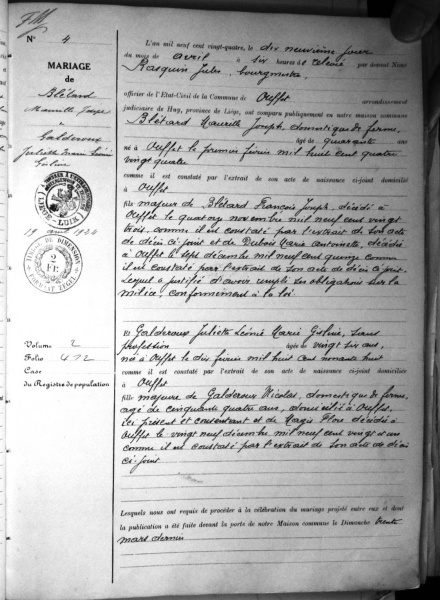 N° 4
MARIAGE
de
Blétard
Marcelle Joseph
&
Galderoux
Juliette Marie Léonie
Gisline
19 avril 1924
TIMBRE DE DIMENSION
2
Fr.
Volume 2
Folio 412
Case
du Registre de population
L'an mil neuf cent vingt-quatre, le dix neuvième jour
du mois de avril à six heures de relevée par devant Nous
Rasquin Jules, bourgmestre
officier de l'Etat-Civil de la Commune de Ouffet arrondissement
judiciaire de Huy, province de Liége, ont comparu publiquement en notre maison commune
Blétard Joseph, domestique de ferme,
âgé de quarante ans
né à Ouffet le premier février mil huit cent quatre
vingt quatre
comme il est constaté par l'extrait de son acte de naissance ci-joint domicilié
à Ouffet
fils majeur de Blétard François Joseph, décédé à
Ouffet le quatorze novembre mil neuf cent vingt
trois, comme il en constaté par l'extrait de son acte
de décès ci-joint et de Dubois Marie Antoinette, décédée
à Ouffet le sept décembre mil neuf cent quinze comme
il en constaté par l'extrait de son acte de décès ci-joint.
Lequel a justifié d'avoir rempli ses obligations sur la
milice, conformément à la loi.
Et Galderoux Juliette Léonie Marie Gisline, sans
profession âgée de vingt six ans,
née à Ouffet le dix février mil huit cent nonante huit
comme il est constaté par l'extrait de son acte de naissance ci-joint domiciliée
à Ouffet
fille majeure de Galderoux Nicolas, domestique de ferme,
âgé de cinquante quatre ans, domicilié à Ouffet,
ici présent et consentant et de Magis Flore décédée à
Ouffet le vingt neuf décembre mil neuf cent vingt et un
comme il en constaté par l'extrait de son acte de décès
ci-joint
Lesquels nous ont requis de procéder à la célébration du mariage projeté entre eux et dont
la publication a été faite devant la porte de notre Maison commune le Dimanche trente
mars dernier